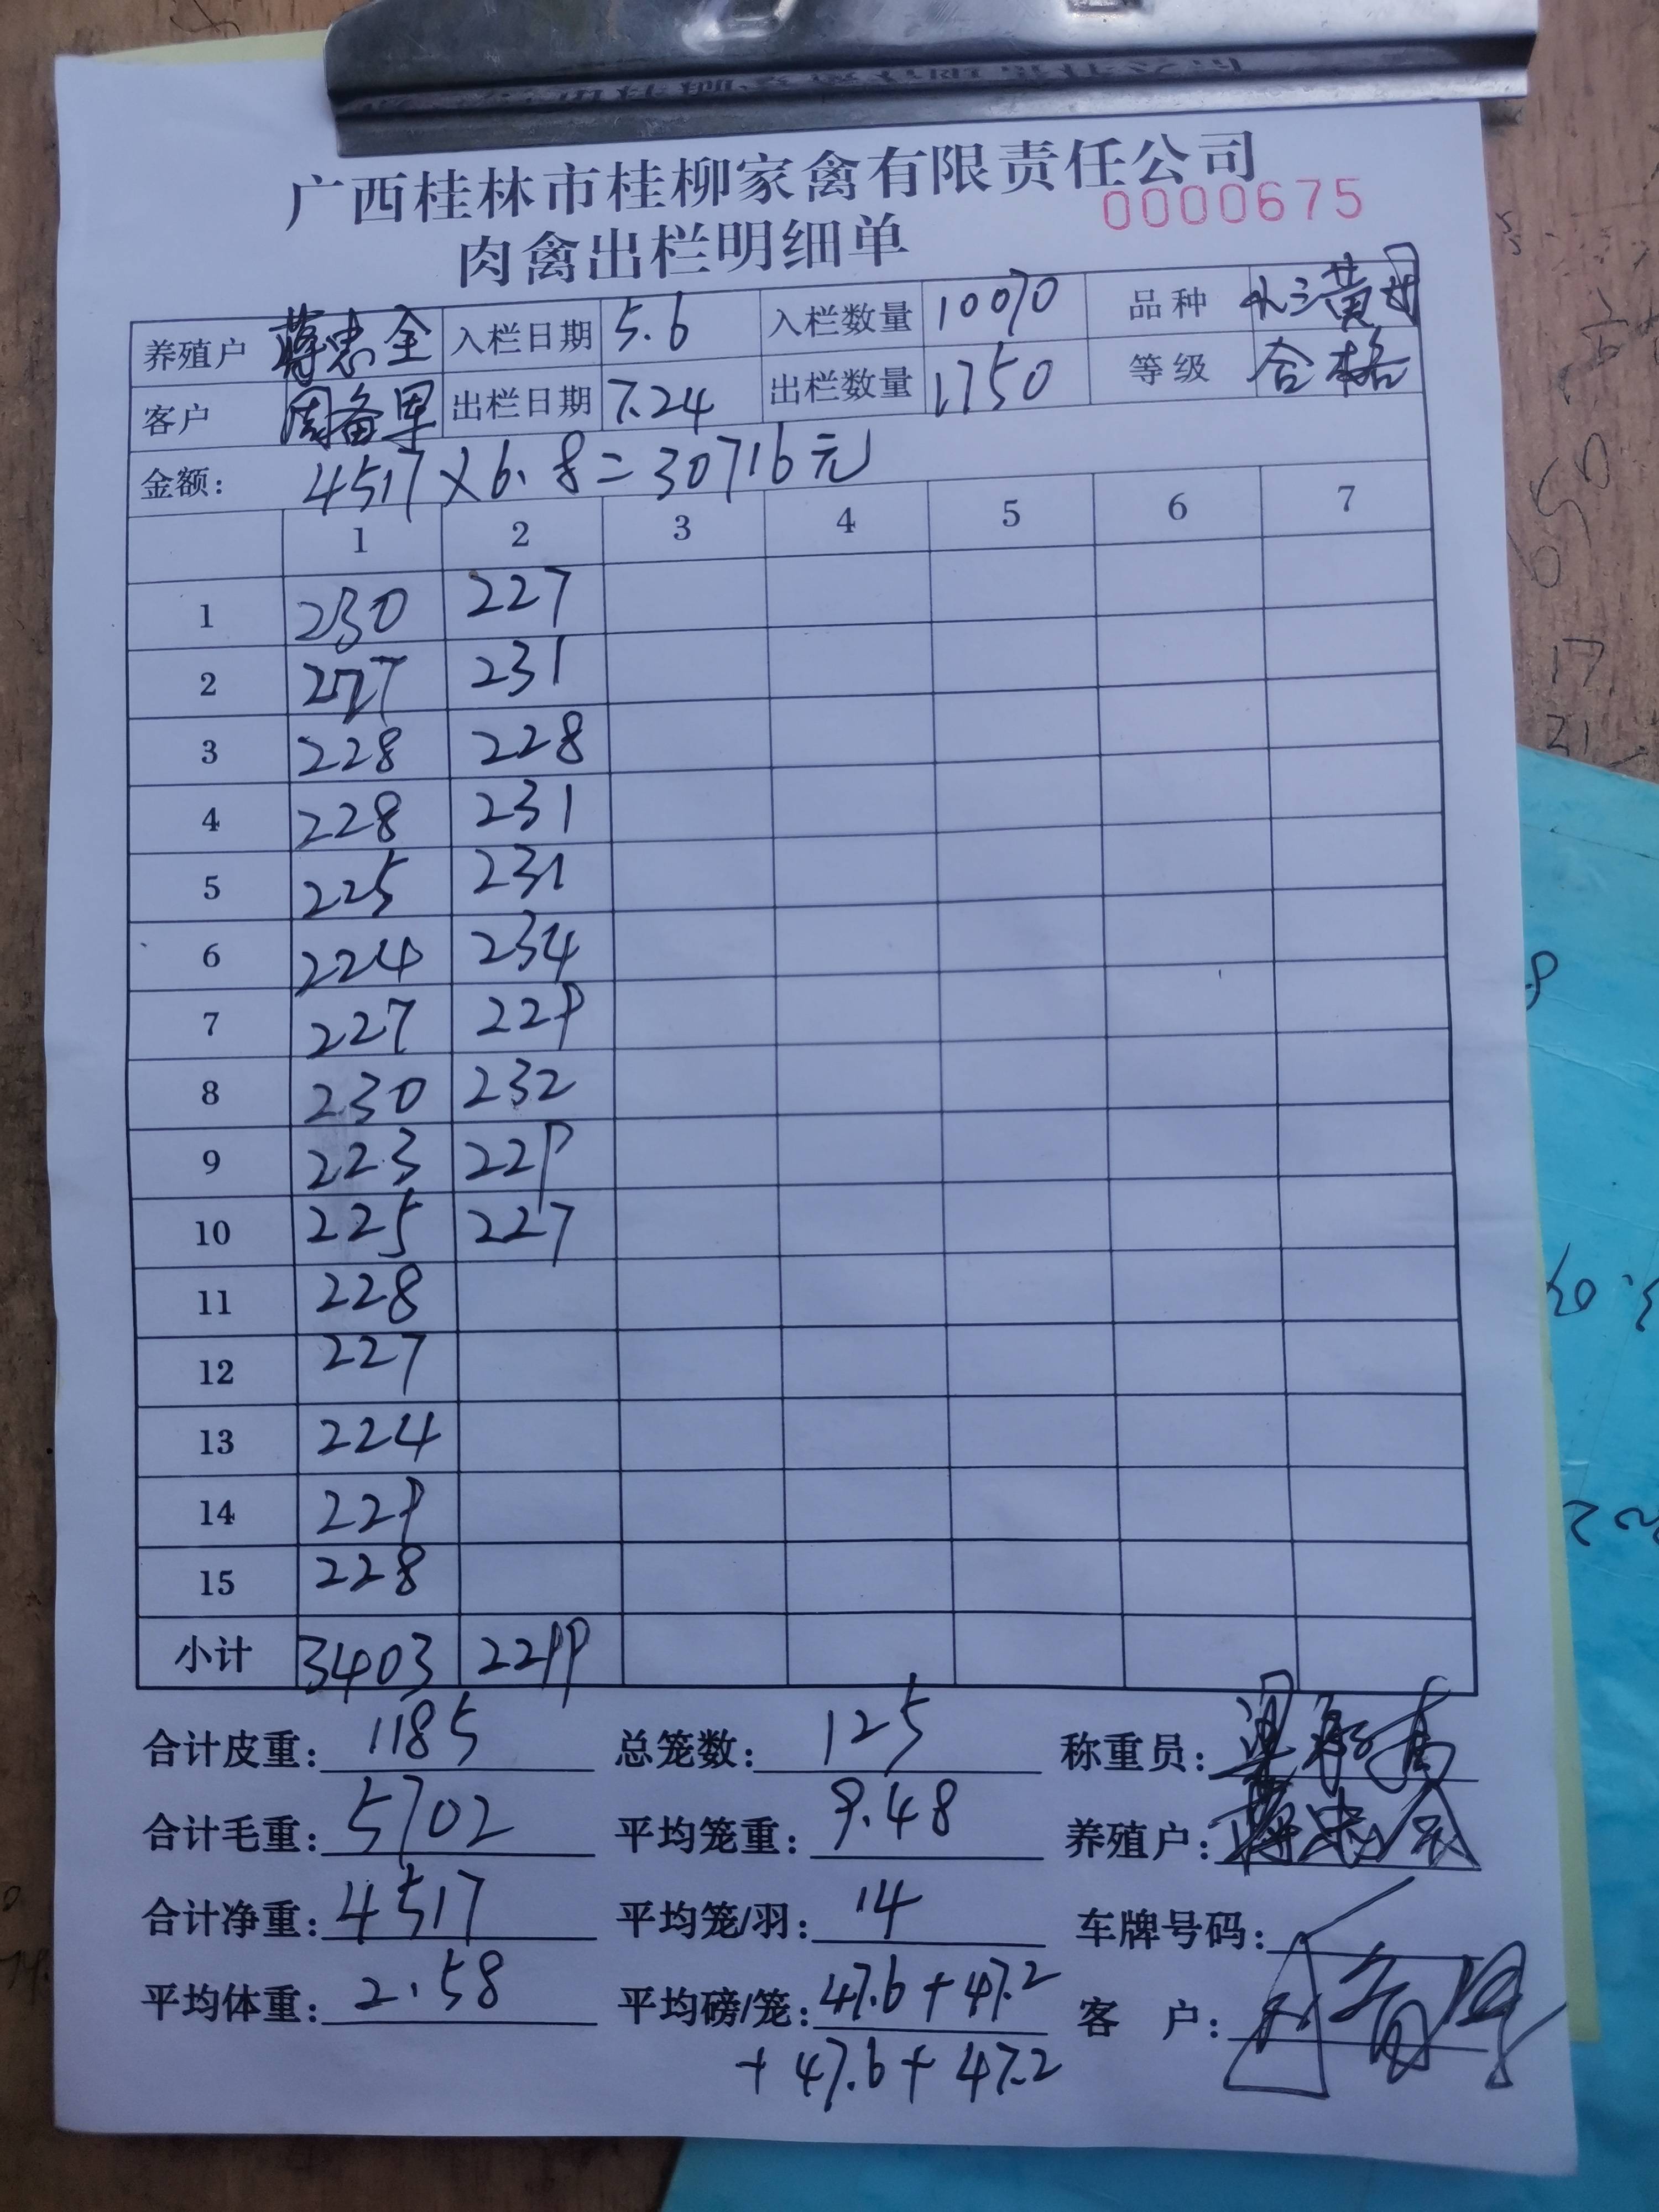 广西桂林市桂柳家禽有限责任公司
0000675
肉禽出栏明细单
养殖户 蒋忠全 入栏日期 5.6 入栏数量 10070 品种 小三黄母
客户 出栏日期 7.24 出栏数量 1750 等级 合格
金额: 4517×6.8=30716元
1 2 3 4 5 6 7
1 230 227
2 227 231
3 228 228
4 228 231
5 225 231
6 224 234
7 227 229
8 230 232
9 223 229
10 225 227
11 228
12 227
13 224
14 229
15 228
小计 3403 2299
合计皮重: 1185 总笼数: 125 称重员:
合计毛重: 5702 平均笼重: 9.48 养殖户: 蒋忠全
合计净重: 4517 平均笼/羽: 14 车牌号码:
平均体重: 2.58 平均磅/笼: 47.6+47.2 客 户:
+47.6+47.2